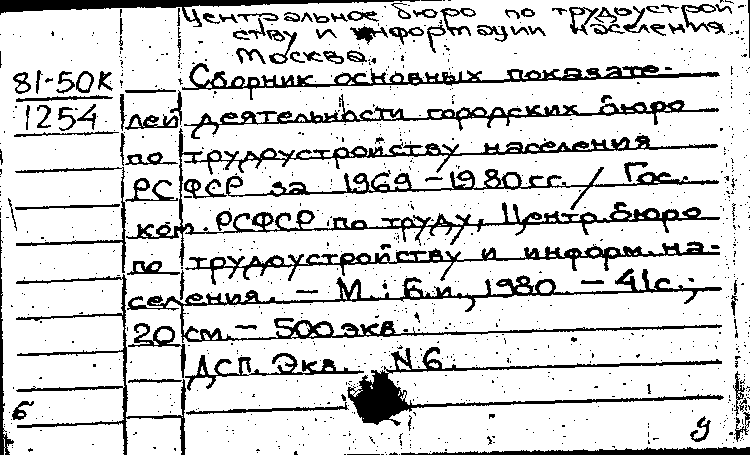 Центральное бюро по трудоустрой-
ству и информации населения.
Москва.
81-50К Сборник основных показате-
1254 лей деятельности городских бюро
по трудоустройству населения
РСФСР за 1969-1980 гг. / Гос.
ком. РСФСР по труду, Центр. бюро
по трудоустройству и информ. на-
селения. — М.: Б.и., 1980. — 41 с.;
20 см. — 500 экз.
ДСП. Экз. N 6.
б